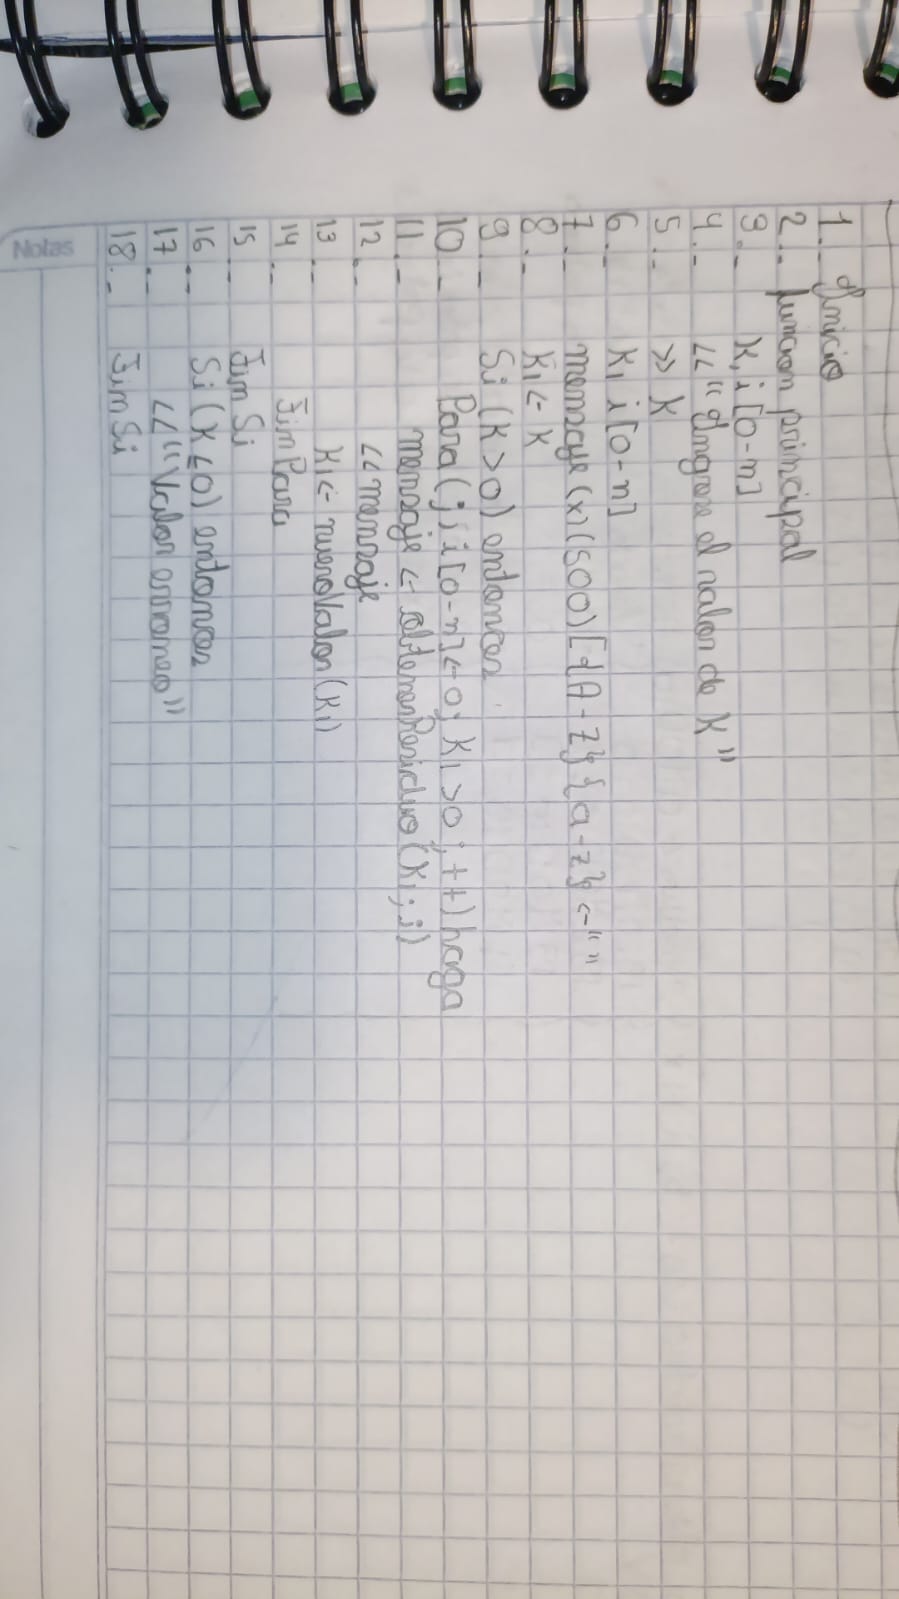 1.- Inicio
2.- funcion principal
3.- K, i [0-n]
4.- << "Ingrese el valor de K"
5.- >> K
6.- K1 i [0-n]
7.- mensaje (x) (500) [{A-Z} {a-z}] <- " "
8.- K1 <- K
9.- Si (K > 0) entonces
10.- Para (j i [0-n] <- 0; K1 > 0; ++) haga
11.- mensaje <- obtenerResiduo (K1; j)
12.- << mensaje
13.- K1 <- nuevoValor (K1)
14.- Fin Para
15.- Fin Si
16.- Si (K ≤ 0) entonces
17.- << "Valor erroneo"
18.- Fin Si
Notas